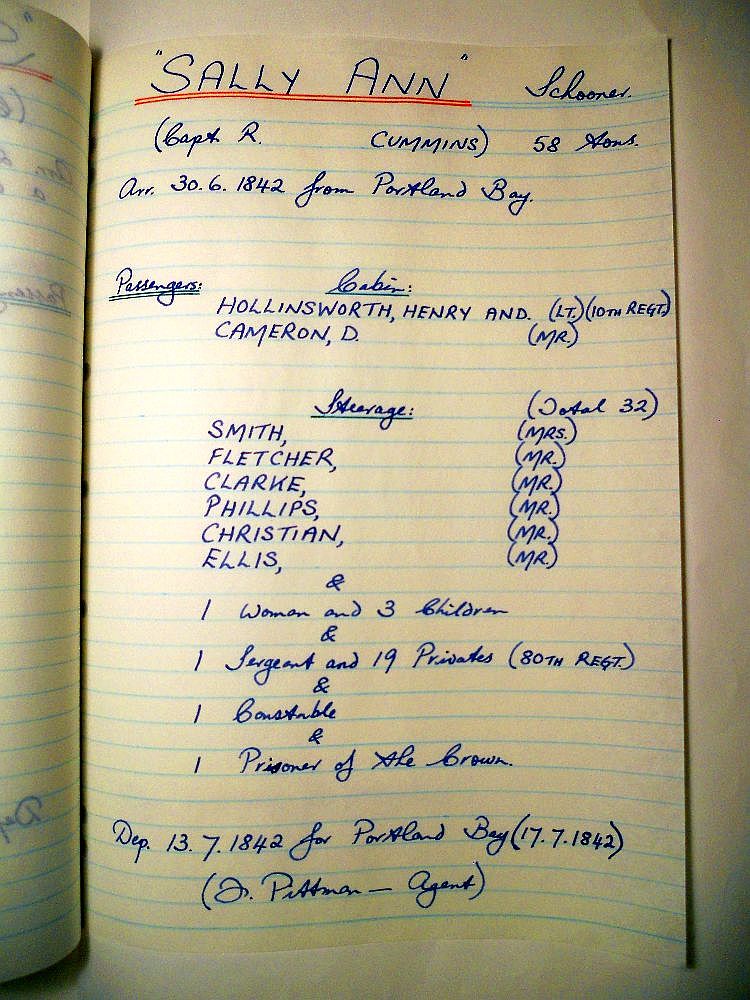 "SALLY ANN" Schooner.
(Capt. R. CUMMINS) 58 tons.
Arr. 30.6.1842 from Portland Bay.
Passengers: Cabin:
HOLLINSWORTH, HENRY AND. (LT.) (10TH REGT.)
CAMERON, D. (MR.)
Steerage: (Total 32)
SMITH, (MRS.)
FLETCHER, (MR.)
CLARKE, (MR.)
PHILLIPS, (MR.)
CHRISTIAN, (MR.)
ELLIS, (MR.)
&
1 Woman and 3 Children
&
1 Sergeant and 19 Privates (80TH REGT.)
&
1 Constable
&
1 Prisoner of the Crown.
Dep. 13.7.1842 for Portland Bay (17.7.1842)
Pittman — Agent)